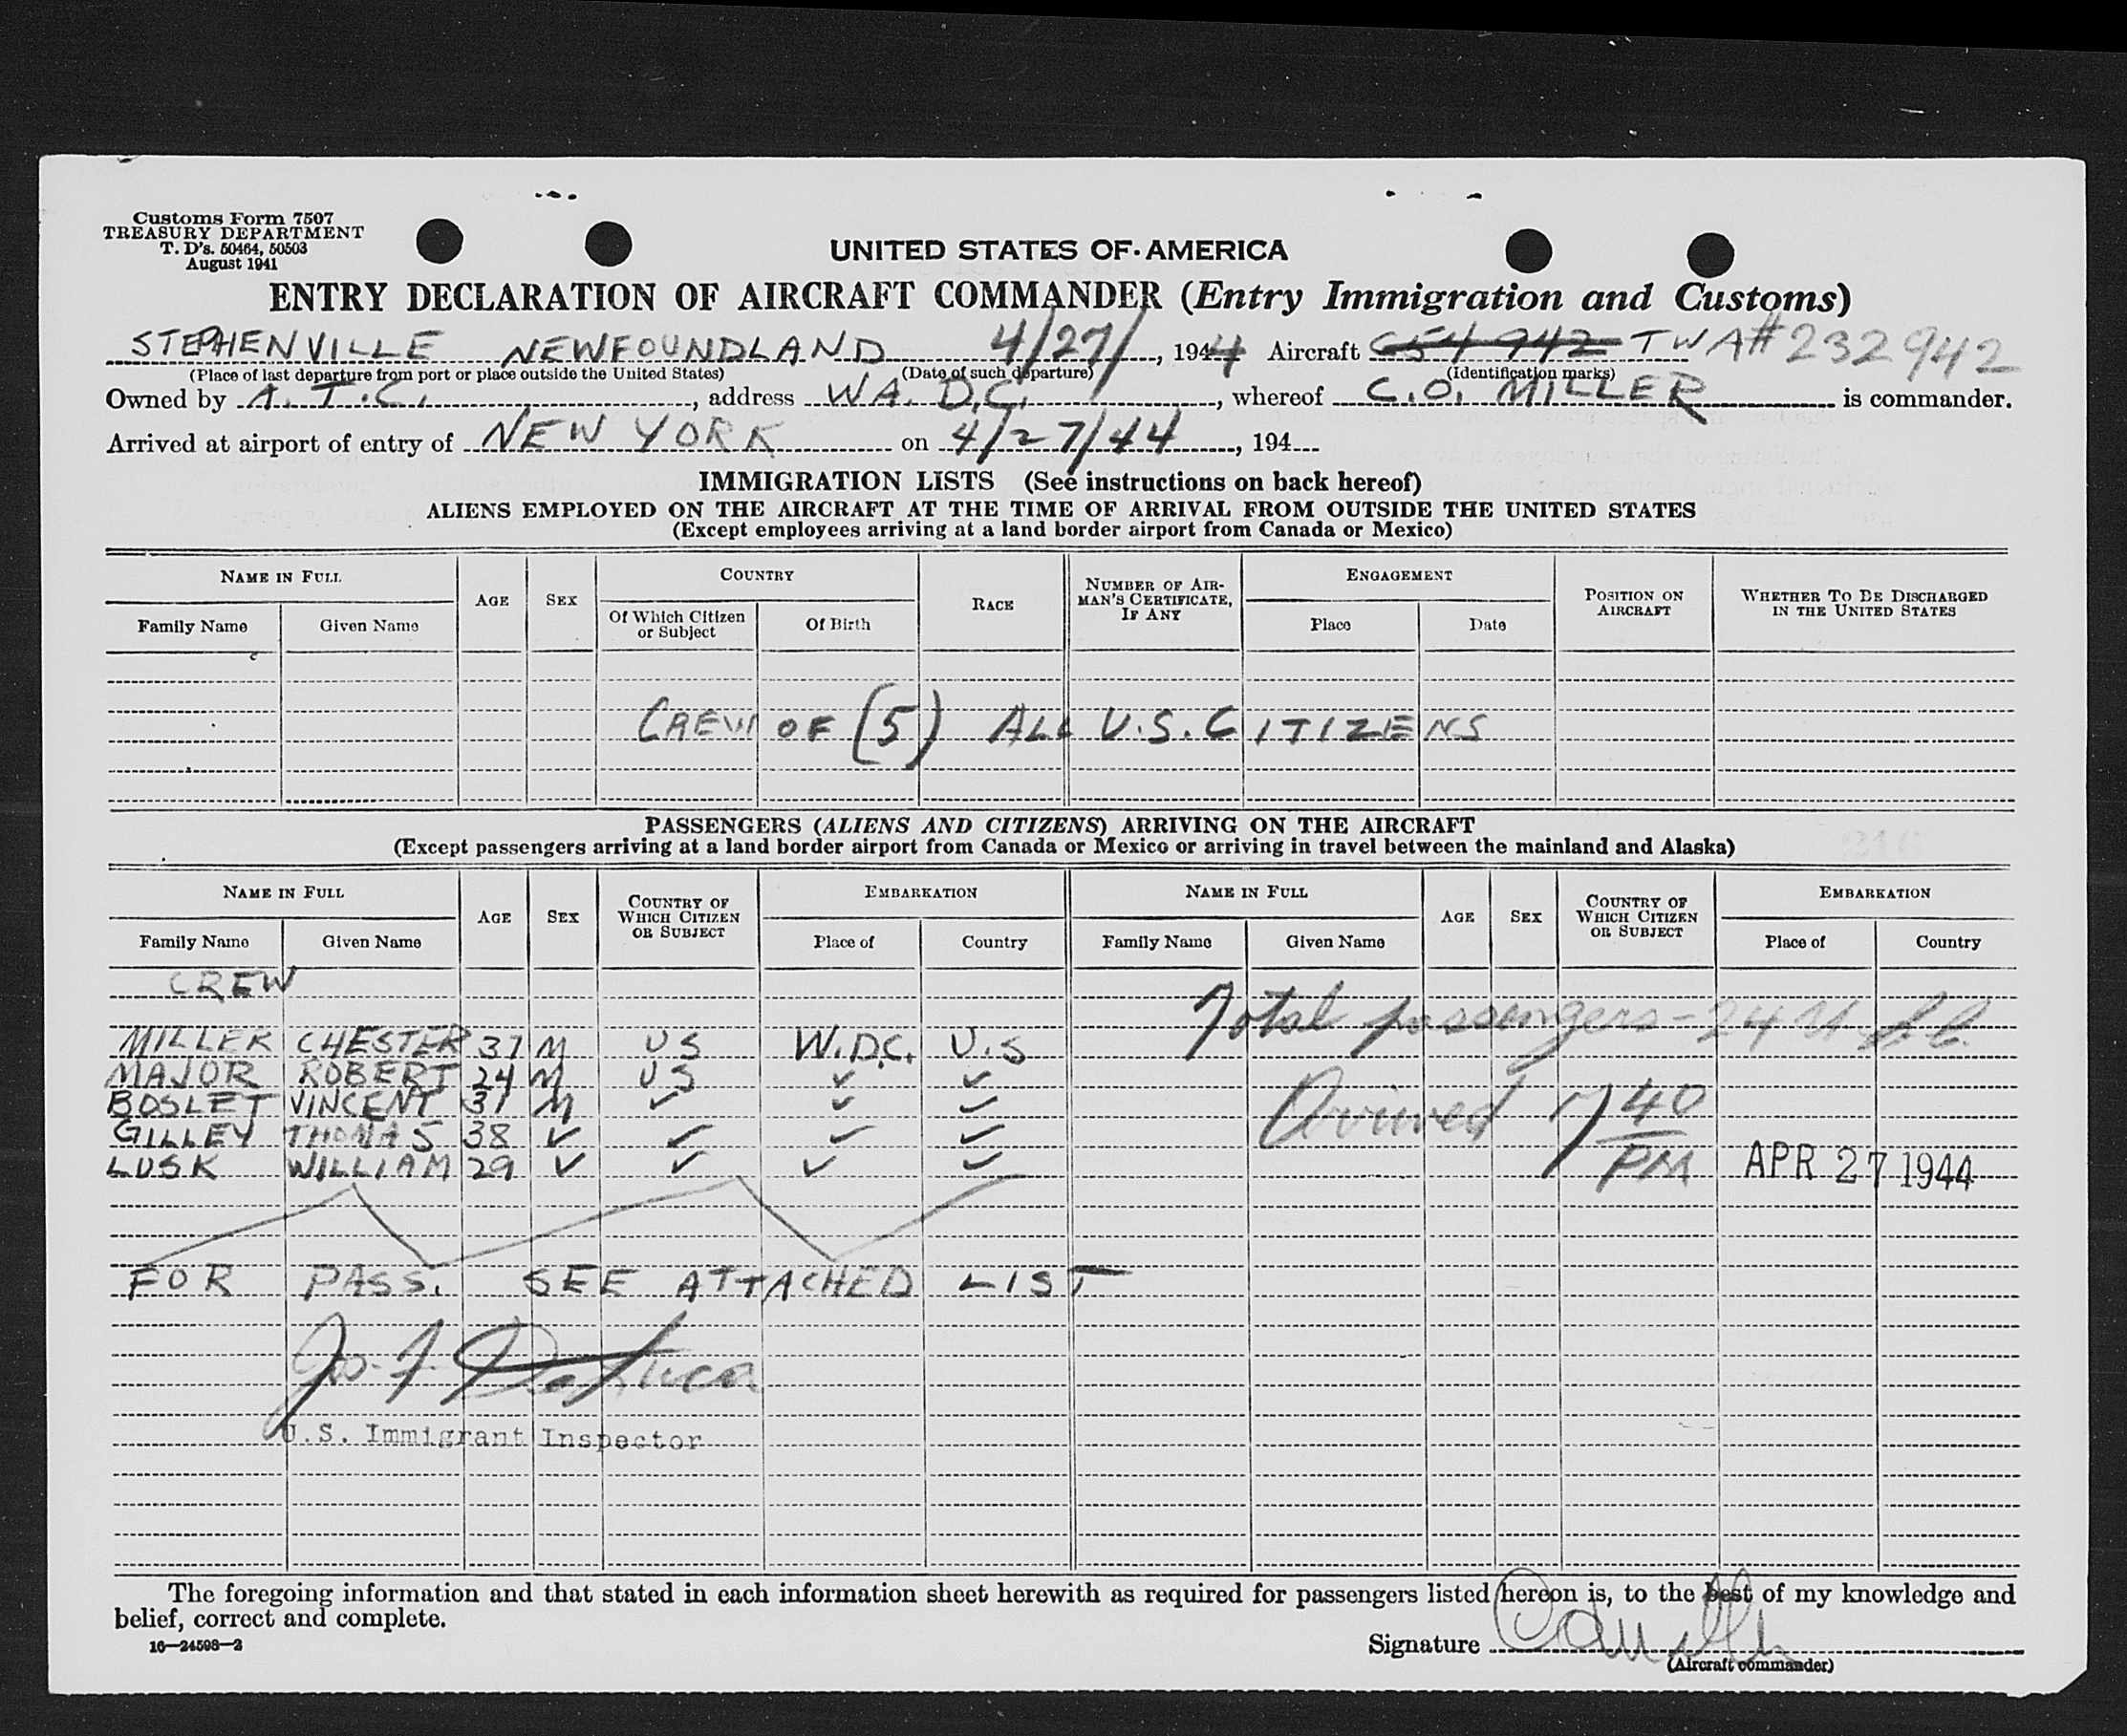 Customs Form 7507
TREASURY DEPARTMENT
T. D's. 50464, 50503
August 1941
UNITED STATES OF AMERICA
ENTRY DECLARATION OF AIRCRAFT COMMANDER (Entry Immigration and Customs)
STEPHENVILLE NEWFOUNDLAND 4/27/, 1944 Aircraft C54 942 TWA #232942
(Place of last departure from port or place outside the United States) (Date of such departure) (Identification marks)
Owned by A.T.C., address WA. D.C., whereof C.O. MILLER is commander.
Arrived at airport of entry of NEW YORK on 4/27/44, 194
IMMIGRATION LISTS (See instructions on back hereof)
ALIENS EMPLOYED ON THE AIRCRAFT AT THE TIME OF ARRIVAL FROM OUTSIDE THE UNITED STATES
(Except employees arriving at a land border airport from Canada or Mexico)
NAME IN FULL AGE SEX COUNTRY RACE NUMBER OF AIRMAN'S CERTIFICATE, IF ANY ENGAGEMENT POSITION ON AIRCRAFT WHETHER TO BE DISCHARGED IN THE UNITED STATES
Family Name Given Name Of Which Citizen or Subject Of Birth Place Date
CREW OF (5) ALL U.S. CITIZENS
PASSENGERS (ALIENS AND CITIZENS) ARRIVING ON THE AIRCRAFT
(Except passengers arriving at a land border airport from Canada or Mexico or arriving in travel between the mainland and Alaska)
NAME IN FULL AGE SEX COUNTRY OF WHICH CITIZEN OR SUBJECT EMBARKATION NAME IN FULL AGE SEX COUNTRY OF WHICH CITIZEN OR SUBJECT EMBARKATION
Family Name Given Name Place of Country Family Name Given Name Place of Country
CREW
Total passengers - 24 U.S.C.
MILLER CHESTER 37 M US W.D.C. U.S
MAJOR ROBERT 24 M US ✓ ✓
BOSLET VINCENT 31 M ✓ ✓ ✓
Arrived 1740 PM
GILLEY THOMAS 38 ✓ ✓ ✓ ✓
LUSK WILLIAM 29 ✓ ✓ ✓ ✓
APR 27 1944
FOR PASS. SEE ATTACHED LIST
U.S. Immigrant Inspector
The foregoing information and that stated in each information sheet herewith as required for passengers listed hereon is, to the best of my knowledge and
belief, correct and complete.
16—24598-2
Signature
(Aircraft commander)